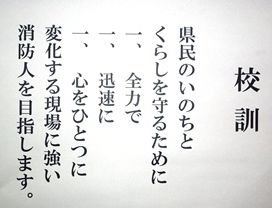 校訓
県民のいのちと
くらしを守るために
一、全力で
一、迅速に
一、心をひとつに
変化する現場に強い
消防人を目指します。